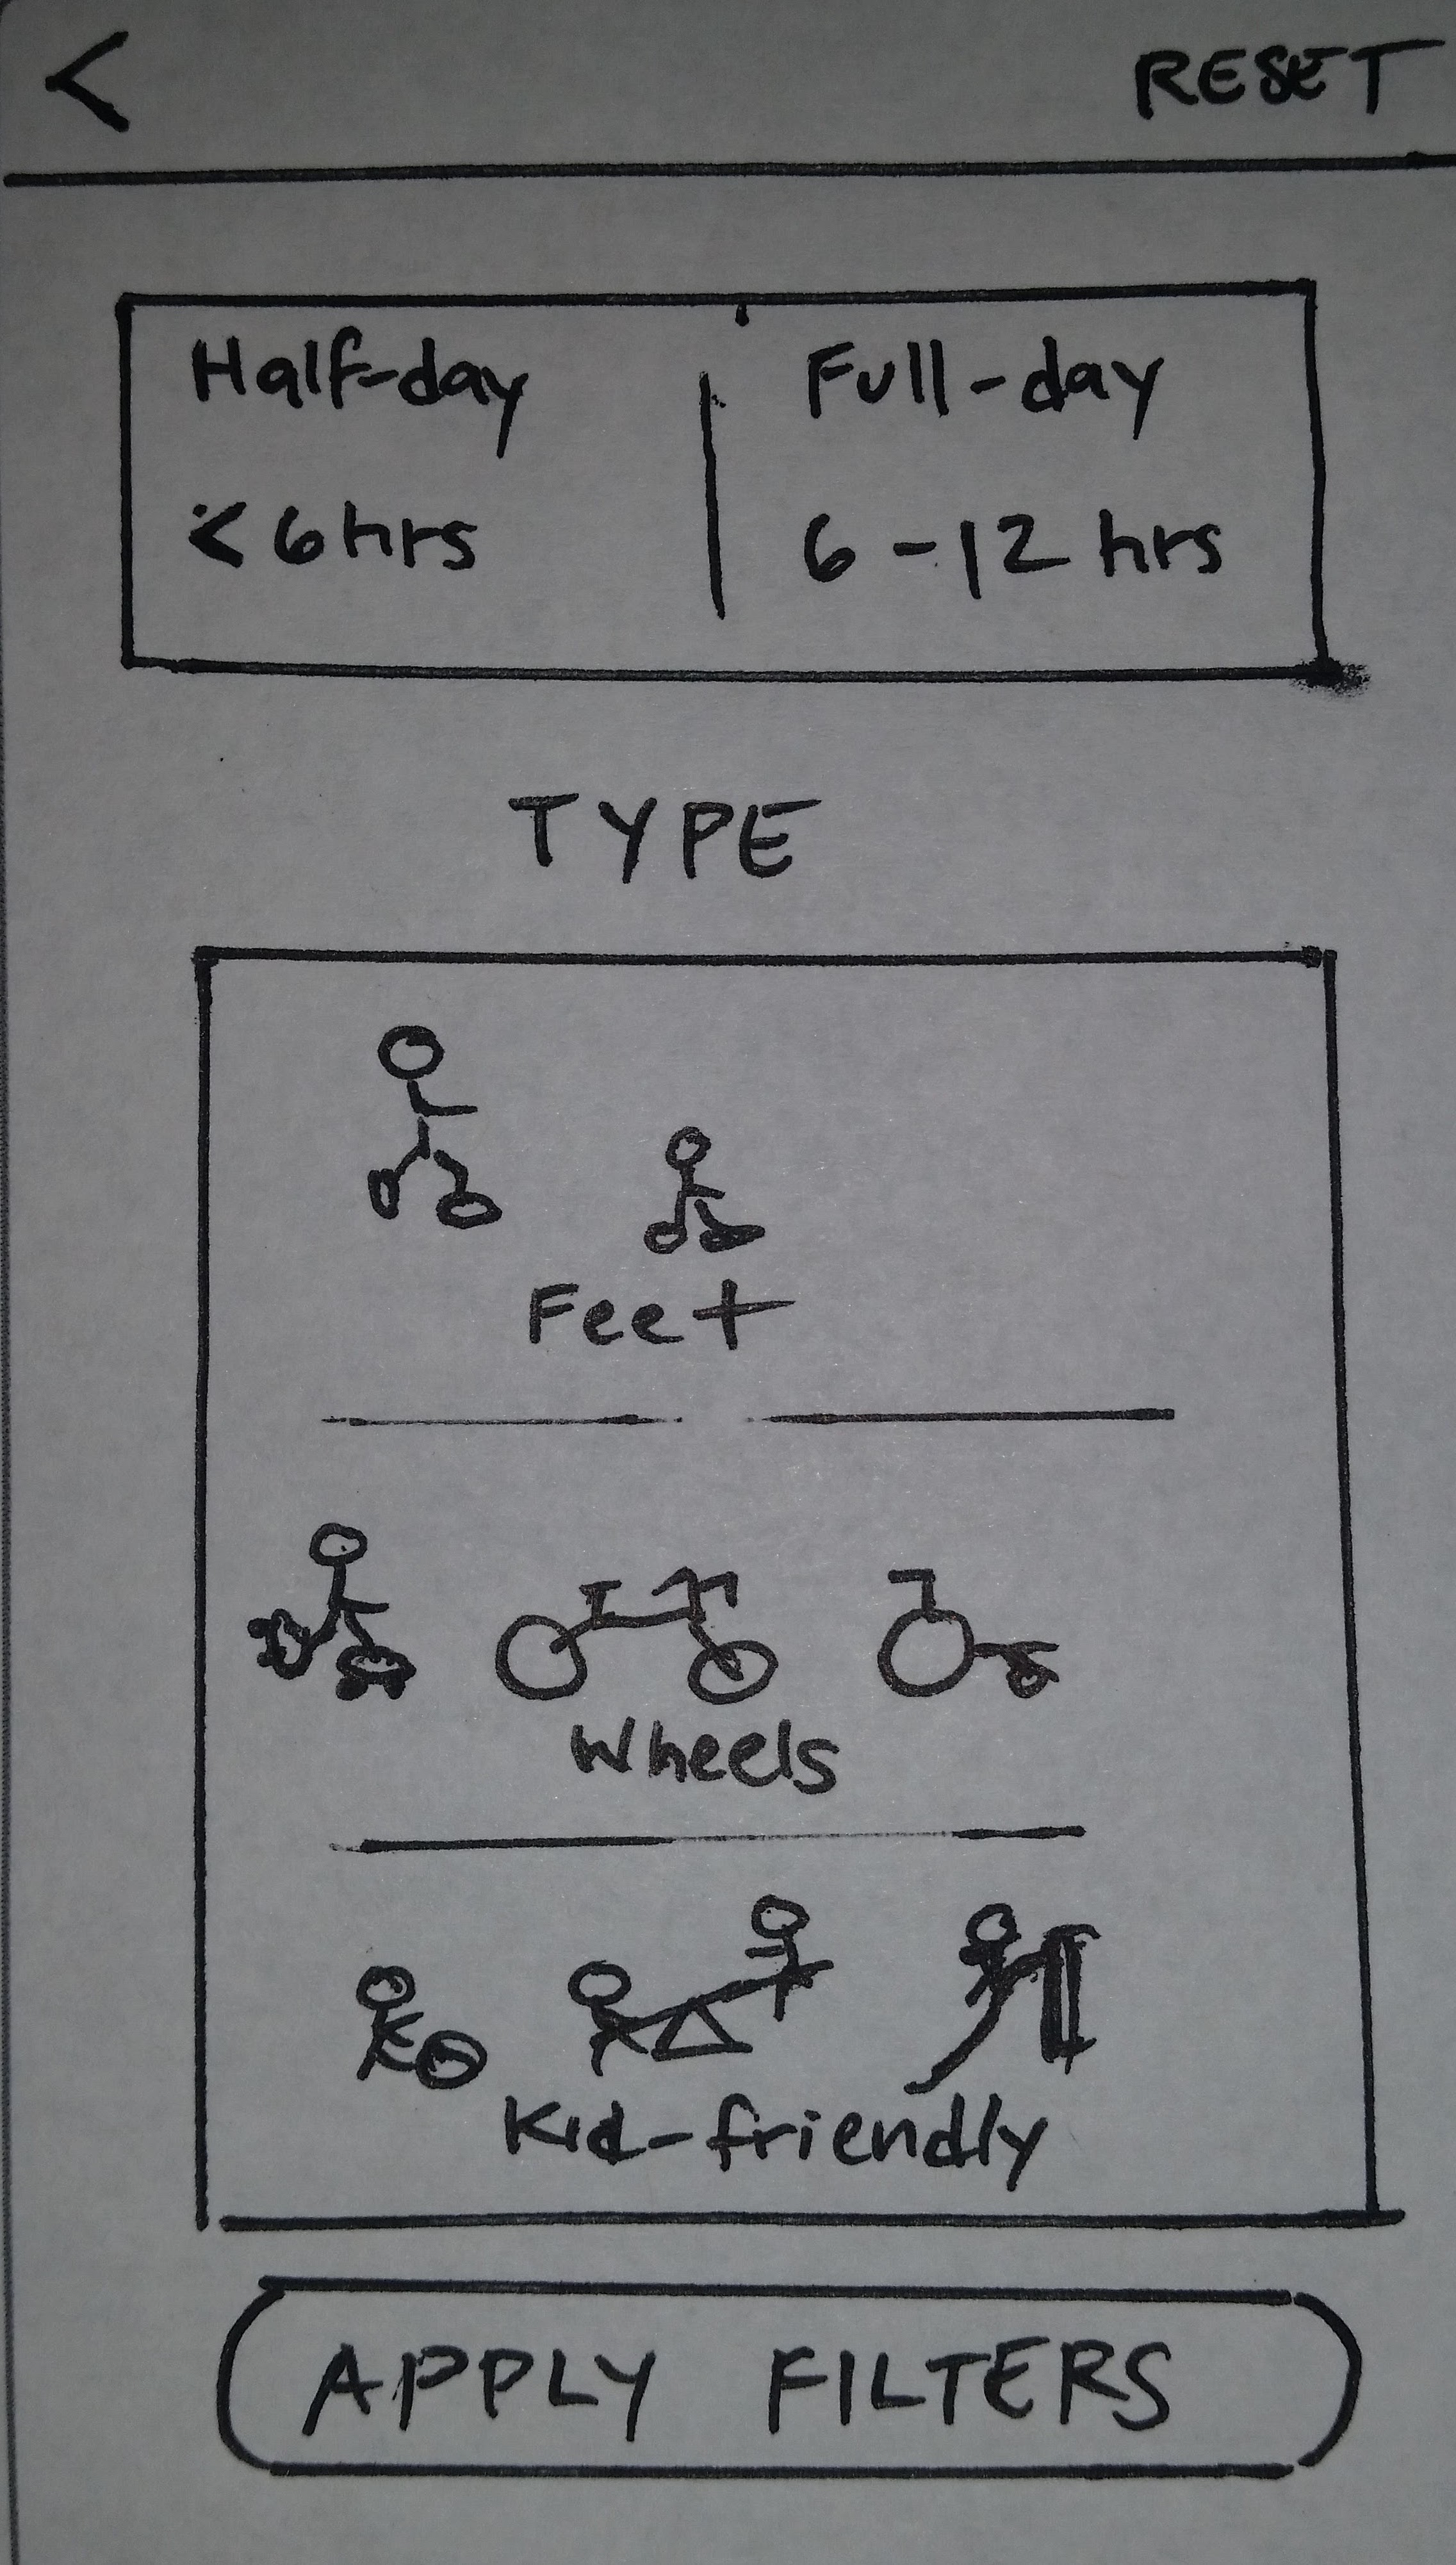 < RESET
Half-day Full-day
< 6 hrs 6-12 hrs
TYPE
Feet
Wheels
Kid-friendly
APPLY FILTERS